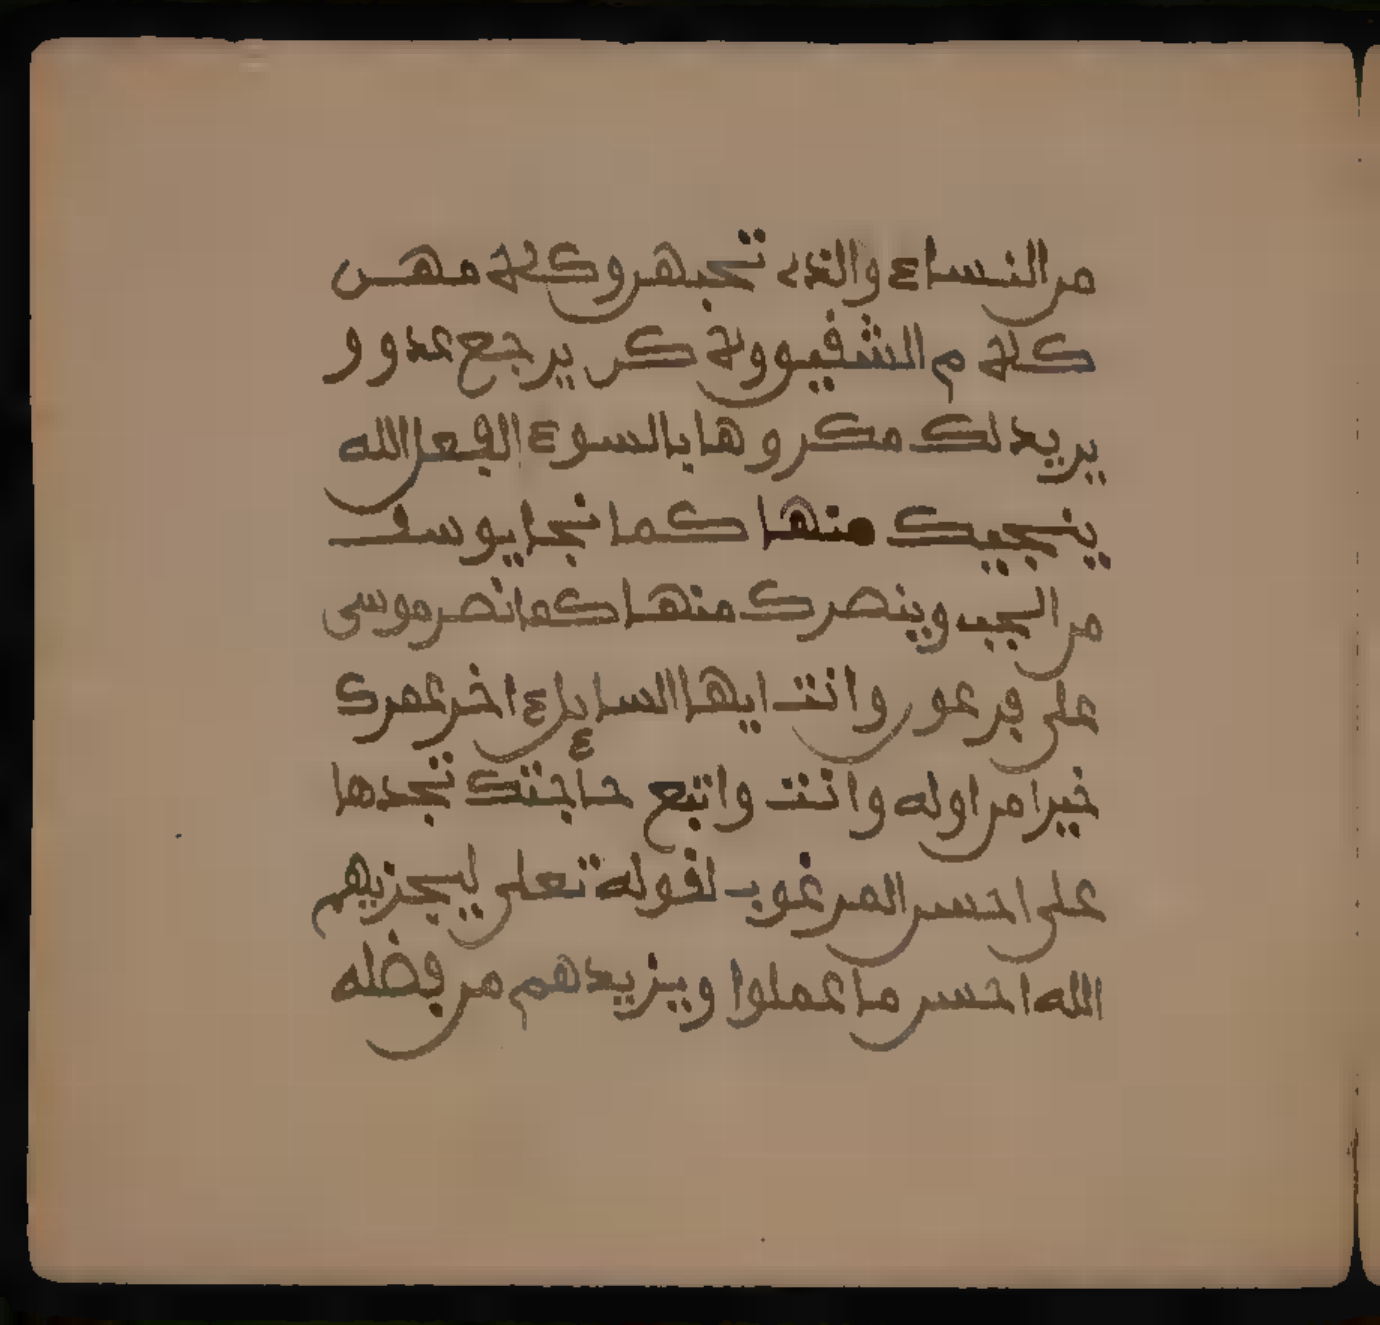 من النساء والتے تحبهن وكلے مهن
كلے م الشقيق ولے كن يرجع عدو و
يريد لك مكروها بالسوء الفعل الله
ينجيك منها كما نجا يوسف
من الجب وينصرك منها كما نصر موسى
على فرعون وانت ايها السايل ء اخر عمرك
خيرا من اوله وانت واتبع حاجتك تجدها
على احسن المرغوب لقوله تعلى ليجزيهم
الله احسن ما عملوا ويزيدهم من فضله